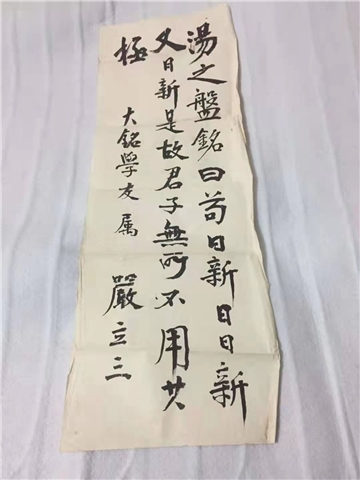 湯之盤銘曰苟日新日日新
又日新是故君子無所不用其
極
大銘學友属
嚴立三